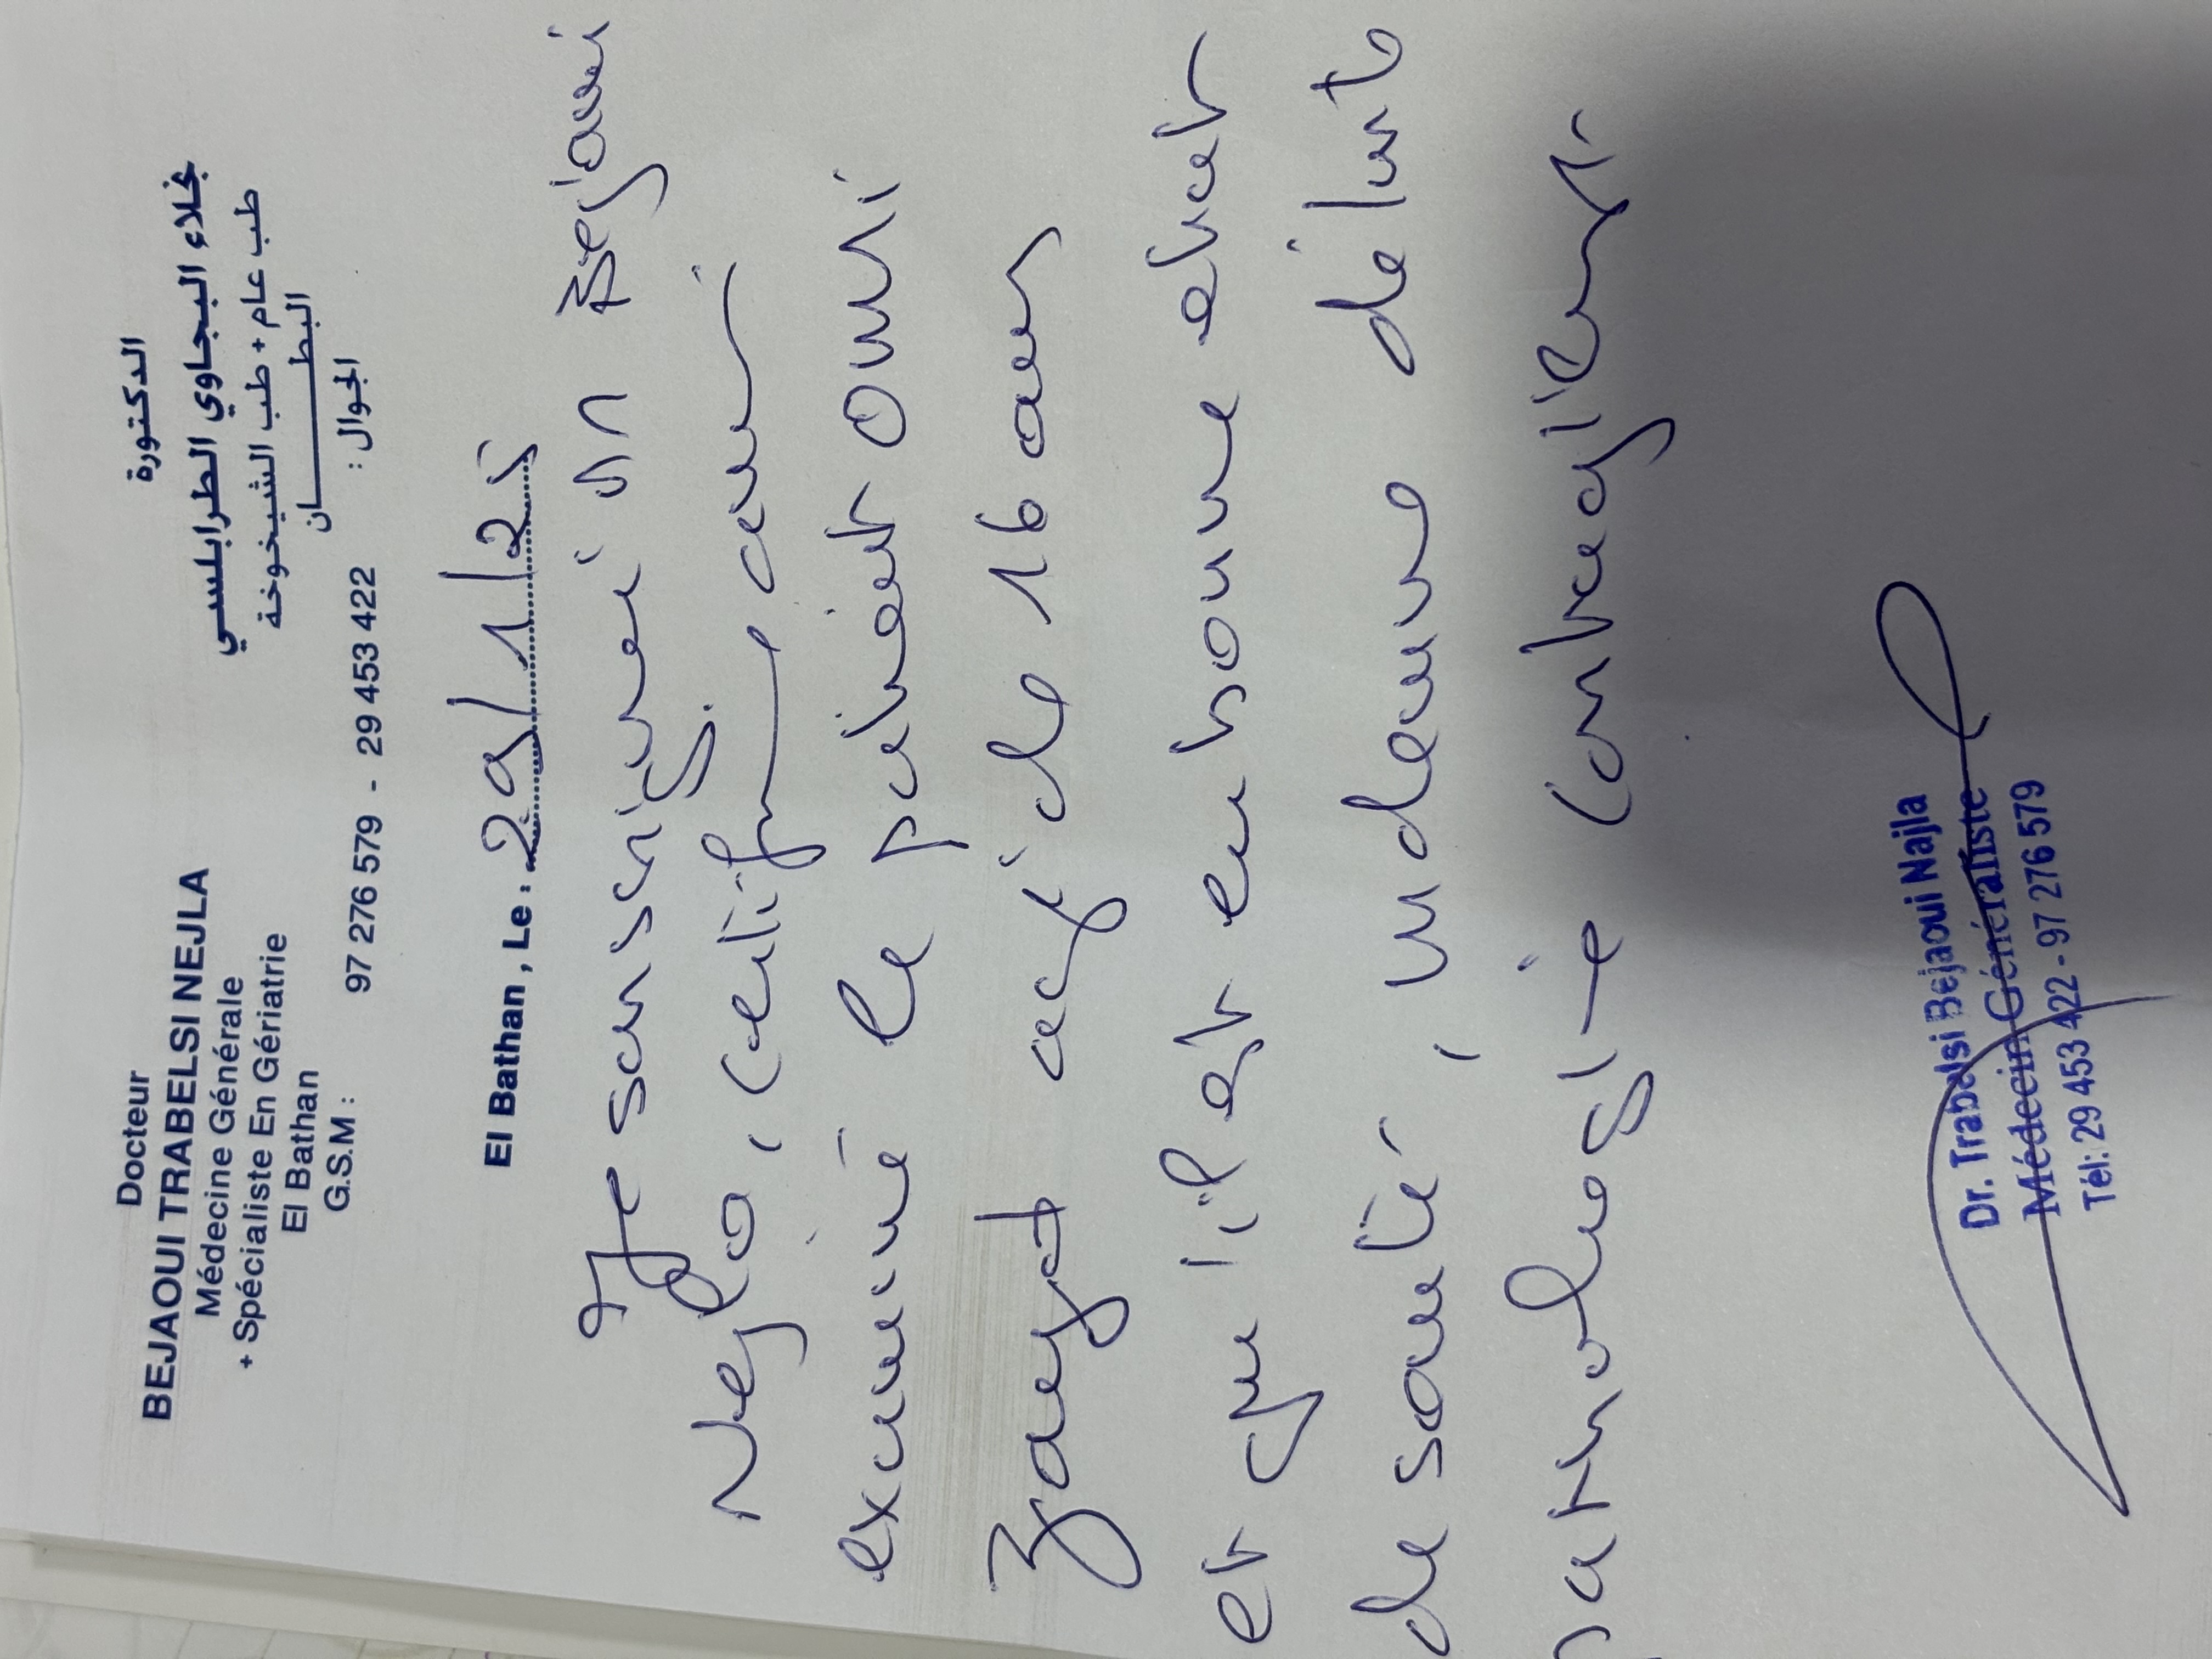 Docteur
BEJAOUI TRABELSI NEJLA
Médecine Générale
+ Spécialiste En Gériatrie
El Bathan
G.S.M :
97 276 579 - 29 453 422
الدكتورة
نجلاء البجاوي الطرابلسي
طب عام + طب الشيخوخة
البطــــــــان
الجوال :
El Bathan , Le : 29/1/25
Je soussigné Dr Bejaoui
Nejla, certifie avoir
examiné le patient Ouni
Zayd agé de 16 ans
et qu'il est en bonne état
de santé, indemne de toute
pathologie contagieuse
Dr. Trabelsi Bejaoui Najla
Médecin Généraliste
Tél: 29 453 422 - 97 276 579